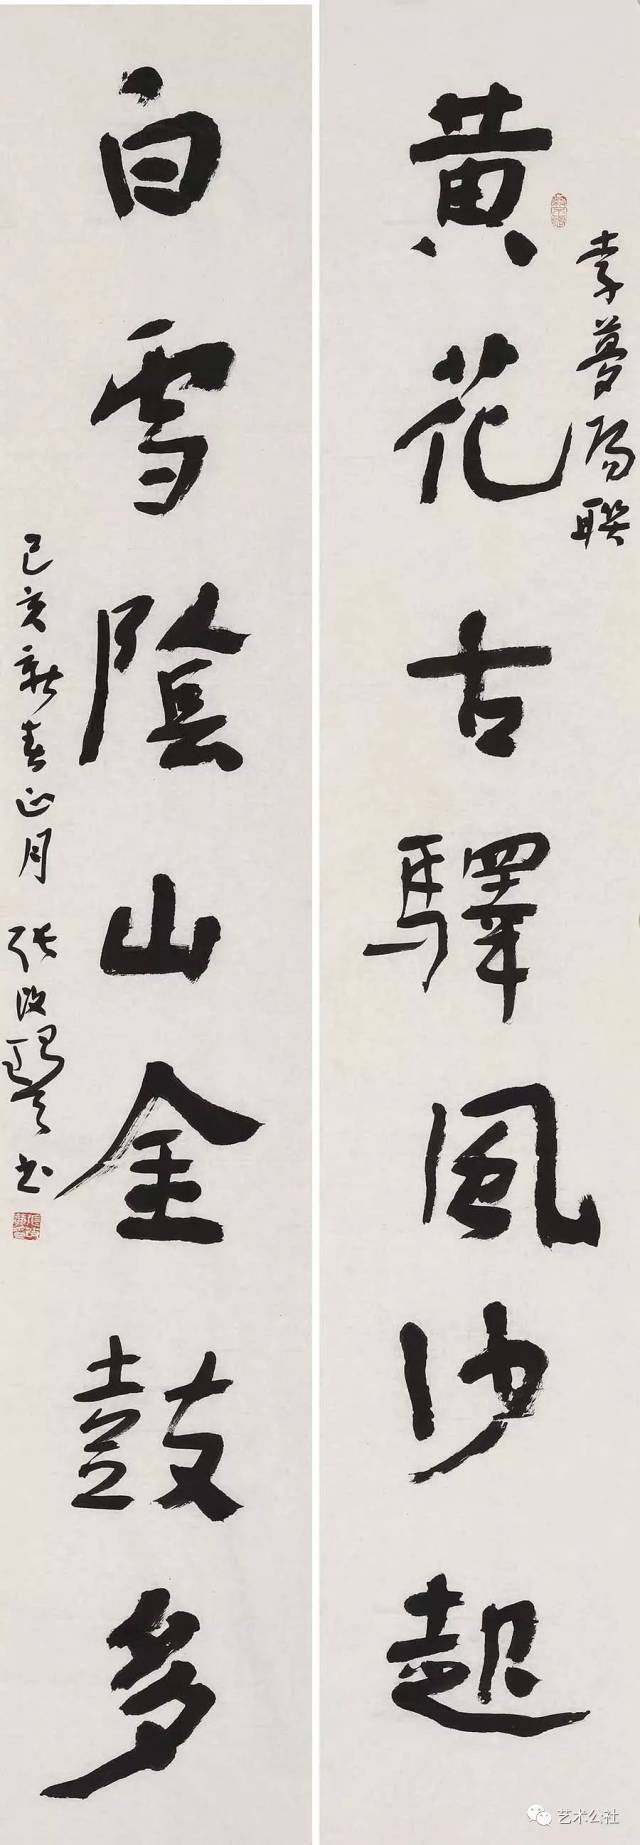 黄花古驛風沙起
李夢陽联
白雪陰山金鼓多
己亥新春正月
张改琴书
艺术公社